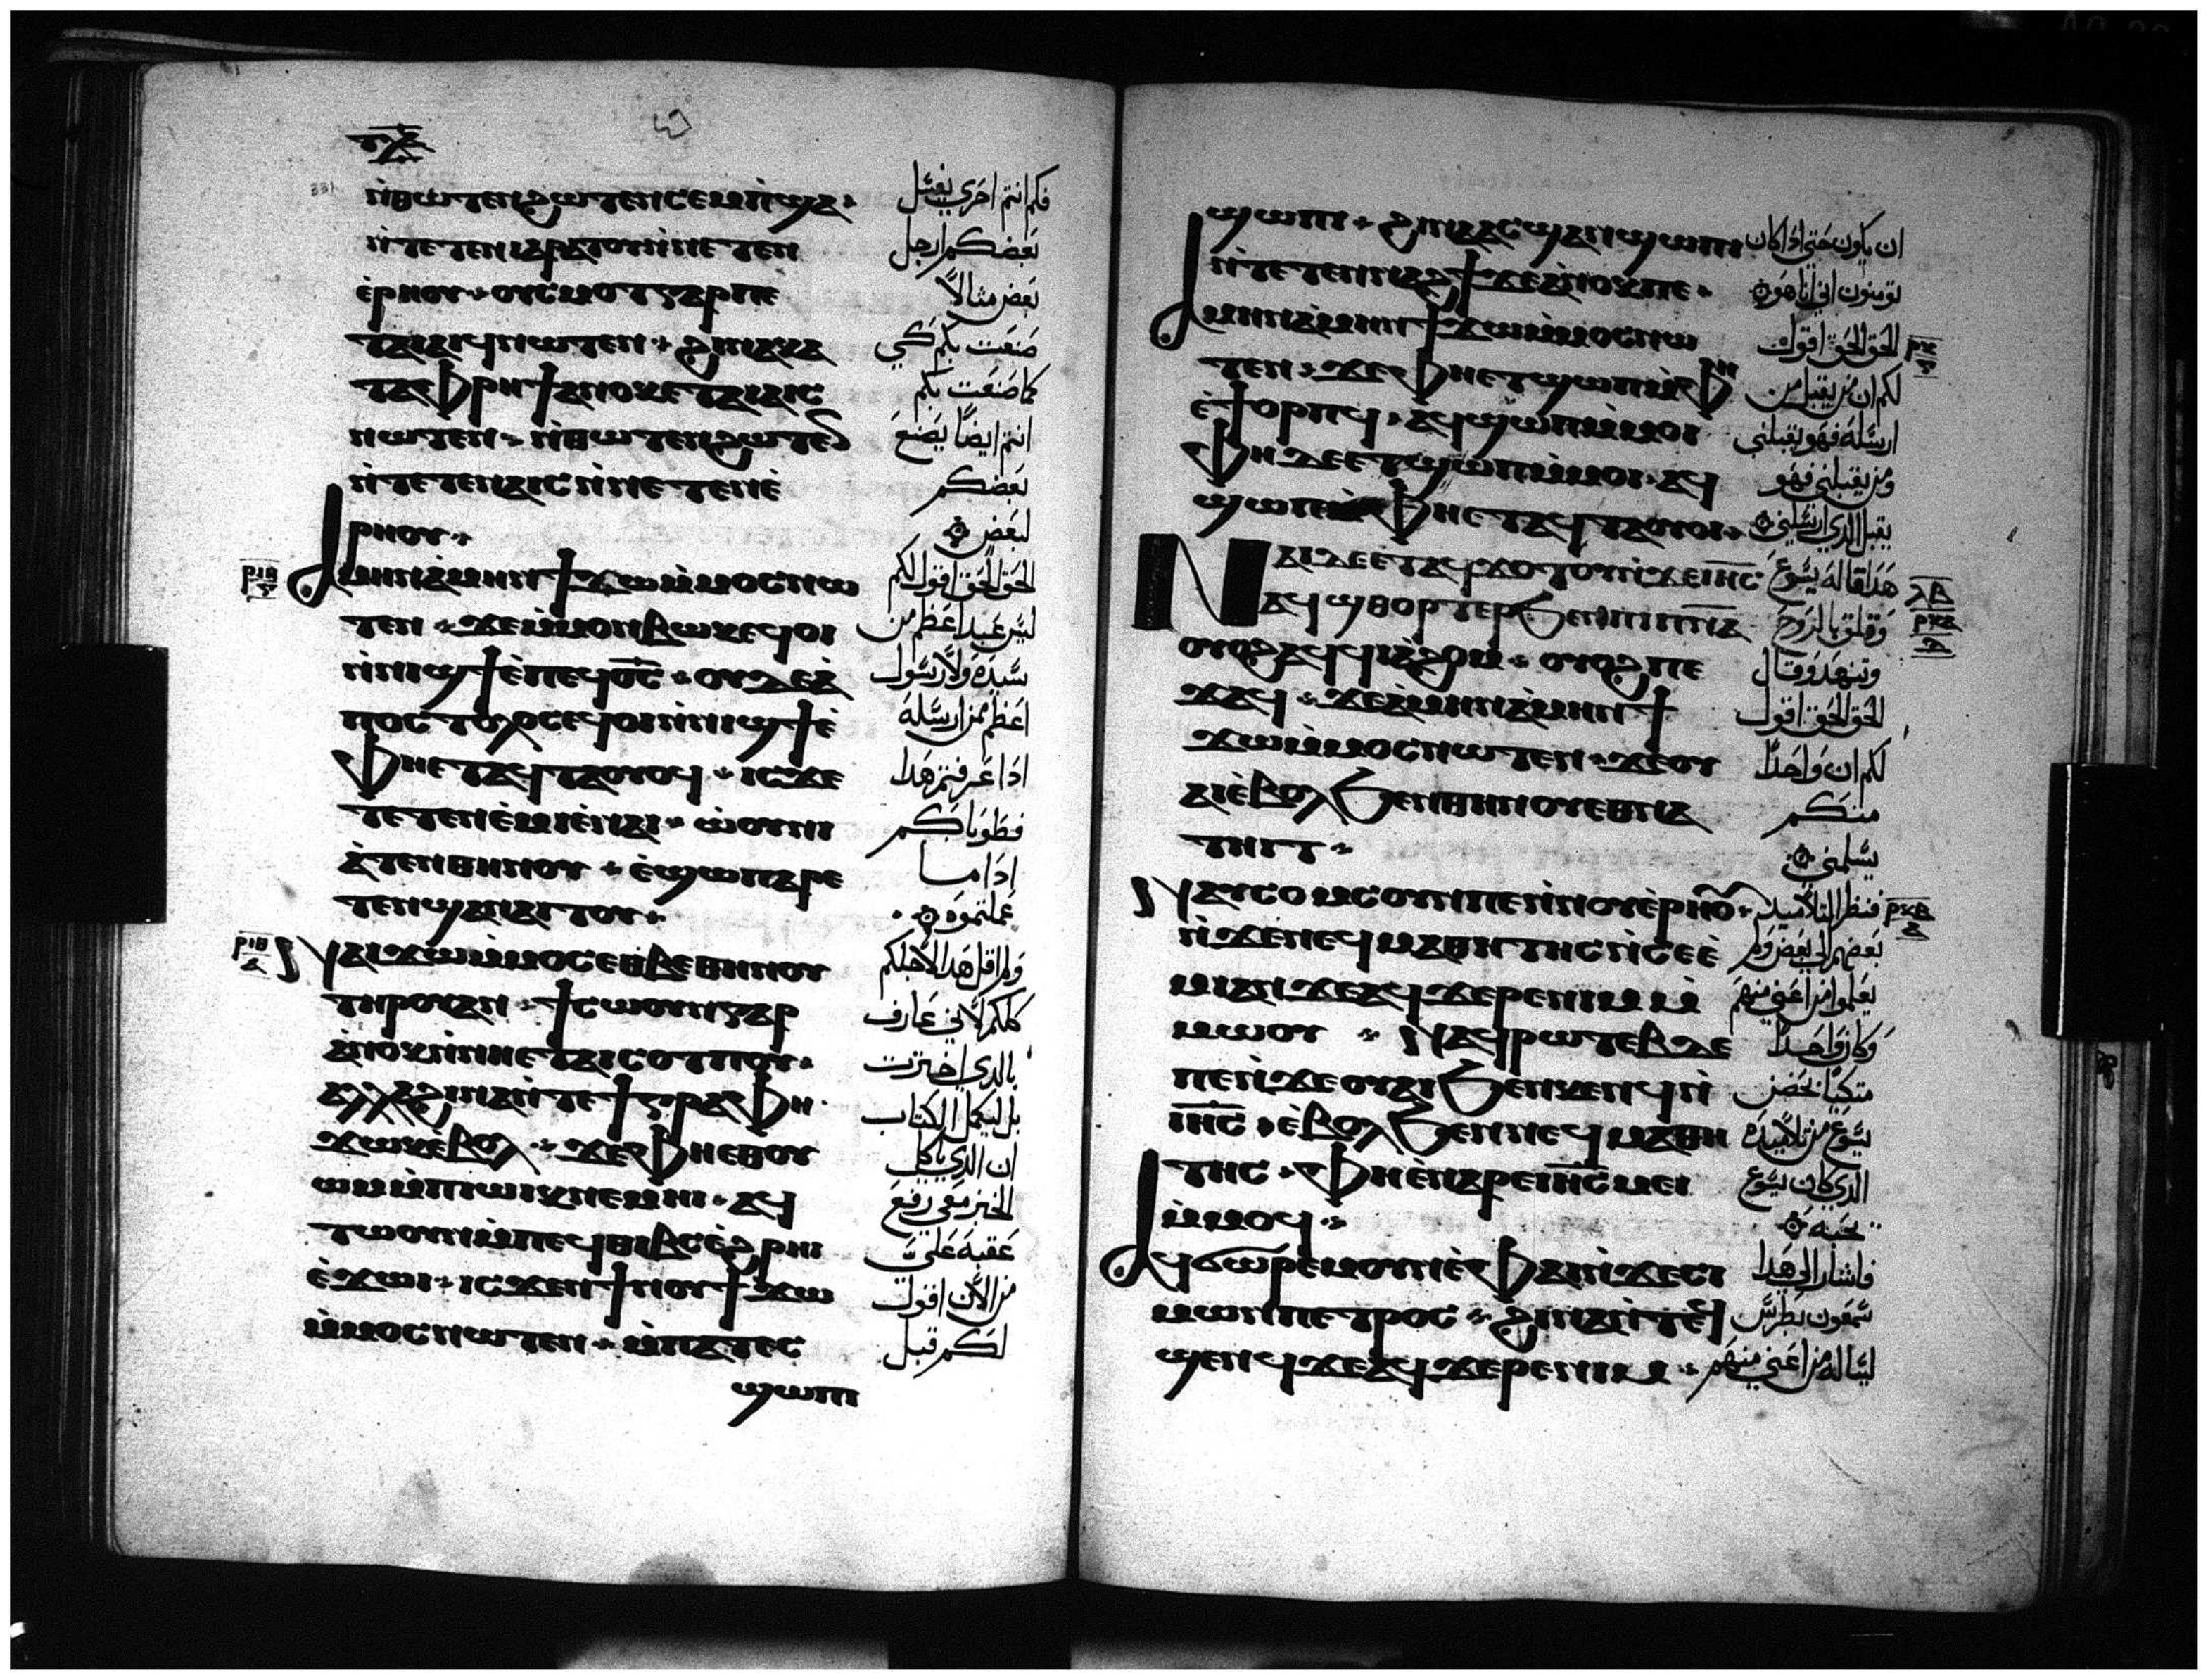 ⲧⲗⲁ
331
ⲛ̇ⲑⲱⲧⲉⲛϩⲱⲧⲉⲛⲥⲉⲙⲡ̇ϣⲁ
ⲛ̇ⲧⲉⲧⲉⲛⲓⲁⲣⲁⲧⲟⲩⲛ̇ⲛⲉⲧⲉⲛ
ⲉ̇ⲣⲏⲟⲩ ⲟⲩⲥⲙⲟⲧⲅⲁⲣⲡⲉ
ⲧⲁⲓⲁⲓϥⲛⲱⲧⲉⲛ ϩⲓⲛⲁⲕⲁ
ⲧⲁⲫⲣⲏϯⲁⲛⲟⲕⲉⲧⲁⲓⲁⲓⲥ
ⲛⲱⲧⲉⲛ ⲛ̇ⲑⲱⲧⲉⲛϩⲱⲧⲉⲛ
ⲛ̇ⲧⲉⲧⲉⲛⲁⲓⲥⲛ̇ⲛⲉⲧⲉⲛⲉ̇
ⲣⲏⲟⲩ
ⲣⲓⲏ
ⲅ
ⲁⲙⲏⲛⲁⲙⲏⲛϯϫⲱⲙ̇ⲙⲟⲥⲛⲱ
ⲧⲉⲛ ϫⲉⲙ̇ⲙⲟⲛⲃⲱⲕⲉϥⲟⲓ
ⲛ̇ⲛⲓϣϯⲉ̇ⲡⲉϥⲟ̅ⲥ̅ ⲟⲩⲇⲉⲁ̇
ⲡⲟⲥⲧⲟⲗⲟⲥⲉϥⲟⲓⲛ̇ⲛⲓϣϯⲉ̇
ⲫⲏⲉⲧⲁϥⲧⲁⲟⲩⲟϥ ⲓⲥϫⲉ
ⲧⲉⲧⲉⲛⲉ̇ⲙⲓⲉ̇ⲛⲁⲓ ⲱ̇ⲟⲩⲛⲓ
ⲁ̇ⲧⲉⲛⲑⲏⲛⲟⲩ ⲉ̇ϣⲱⲡⲁⲣⲉ
ⲧⲉⲛϣⲁⲛⲁⲓⲧⲟⲩ
ⲣⲓⲑ
ⲛⲁⲓϫⲱⲙ̇ⲙⲟⲥⲉⲑⲃⲉⲑⲏⲛⲟⲩ
ⲧⲏⲣⲟⲩⲁⲛ ϯⲥⲱⲟⲩⲛⲅⲁⲣ
ⲁⲛⲟⲕⲛ̇ⲛⲏⲉⲧⲁⲓⲥⲟⲧⲡⲟⲩ
ⲁⲗⲗⲁϩⲓⲛⲁⲛ̇ⲧⲉϯⲅⲣⲁⲫⲏ
ϫⲱⲕⲉⲃⲟⲗ ϫⲉⲫⲏⲉⲑⲟⲩ
ⲱⲙⲙ̇ⲡⲓⲱⲓⲕⲛⲉⲙⲏⲓ ⲁϥ
ⲧⲱⲟⲩⲛⲙ̇ⲡⲉϥⲑⲓⲃⲥⲉ̇ϩⲣⲏⲓ
ⲉ̇ϫⲱⲓ ⲓⲥϫⲉⲛϯⲛⲟⲩϯϫⲱ
ⲙ̇ⲙⲟⲥⲛⲱⲧⲉⲛ ⲙ̇ⲡⲁⲧⲉⲥ
ϣⲱⲡⲓ
فكم انتم احري يغسل
بعضكم ارجل
بعض مثالا
صنعت بكم كي
كما صنعت بكم
انتم ايضا يصنع
بعضكم
لبعض
الحق الحق اقول لكم
ليس عبد اعظم من
سيده ولا رسول
اعظم من ارسله
اذا عرفتم هدا
فطوباكم
ادا ما
عملتموه
ولم اقل هدا لاجلكم
كلكم لاني عارف
بالدي اخترت
بل ليكمل الكتاب
ان الدي ياكل
الخبز معي رفع
عقبه علي
من الان اقول
لكم قبل
ϣⲱⲡⲓ ϩⲓⲛⲁⲁⲥϣⲁⲛϣⲱⲡⲓ
ⲛ̇ⲧⲉⲧⲉⲛⲛⲁϩϯϫⲉⲁ̇ⲛⲟⲕⲡⲉ
ⲁⲙⲏⲛⲁⲙⲏⲛϯϫⲱⲙ̇ⲙⲟⲥⲛⲱ
ⲧⲉⲛ ϫⲉⲫⲏⲉⲧϣⲱⲡⲙ̇ⲫⲏ
ⲉ̇ϯⲟⲣⲡϥ ⲁϥϣⲱⲡⲙ̇ⲙⲟⲓ
ⲫⲏⲇⲉⲉⲧϣⲱⲡⲙ̇ⲙⲟⲓ ⲁϥ
ϣⲱⲡⲙ̇ⲫⲏⲉⲧⲁϥⲧⲁⲟⲩⲟⲓ
ⲛⲁⲓⲇⲉⲉⲧⲁϥϫⲟⲧⲟⲩⲛ̇ϫⲉⲓⲏ̅ⲥ̅
ⲁϥϣⲑⲟⲣⲧⲉⲣϧⲉⲛⲡⲓⲡ̅ⲛ̅ⲁ̅
ⲟⲩⲟϩⲁϥϥⲓⲁ̇ϩⲟⲙ ⲟⲩⲟϩⲡⲉ
ϫⲁϥ ϫⲉⲁ̇ⲙⲏⲛⲁ̇ⲙⲏⲛϯ
ϫⲱⲙ̇ⲙⲟⲥⲛⲱⲧⲉⲛ ϫⲉⲟⲩ
ⲁⲓⲉ̇ⲃⲟⲗϧⲉⲛⲑⲏⲛⲟⲩⲉⲑⲛⲁ
ⲧⲏⲓⲧ
ⲛⲁⲩⲥⲟⲙⲥⲟⲩⲛⲡⲉⲛ̇ⲛⲟⲩⲉ̇ⲣⲏⲟⲩ
ⲛ̇ϫⲉⲛⲉϥⲙⲁⲑⲏⲧⲏⲥⲛ̇ⲥⲉⲉ̇
ⲙⲓⲁⲛ ϫⲉⲁϥϫⲉⲣⲉⲛⲓⲙⲙ̇
ⲙⲱⲟⲩ ⲛⲁϥⲣⲱⲧⲉⲃⲇⲉ
ⲡⲉⲛ̇ϫⲉⲟⲩⲁⲓϧⲉⲛⲕⲉⲛϥⲛ̇
ⲓⲏ̅ⲥ̅ ⲉ̇ⲃⲟⲗϧⲉⲛⲛⲉϥⲙⲁⲑⲏ
ⲧⲏⲥ ⲫⲏⲉ̇ⲛⲁⲣⲉⲓⲏ̅ⲥ̅ⲙⲉⲓ
ⲙ̇ⲙⲟϥ
ⲁϥϭⲱⲣⲉⲙⲟⲩⲛⲉ̇ⲫⲁⲓⲛ̇ϫⲉⲥⲓ
ⲙⲱⲛⲡⲉⲧⲣⲟⲥ ϩⲓⲛⲁⲛ̇ⲧⲉϥ
ϣⲉⲛϥϫⲉⲁϥϫⲉⲣⲉⲛⲓⲙ
ان يكون حتي ادا كان
تومنون اني انا هو
الحق الحق اقول
لكم ان من يقبل من
ارسله فهو يقبلني
ومن يقبلني فهو
يقبل الدي ارسلني
هدا قاله يسوع
وقلق بالروح
وتنهد وقال
الحق الحق اقول
لكم ان واحدا
منكم
يسلمني
فنظر التلاميد
بعضهم الي بعض ولم
يعلموا من اعني منهم
وكان واحدا
متكيا في حضن
يسوع من تلاميده
الدي كان يسوع
يحبه
فاشار الي هدا
سمعون بطرس
ليساله من اعني منهم
ⲣⲕ
ⲅ
ⲗⲃ
ⲣⲕⲁ
ⲇ
ⲣⲕⲃ